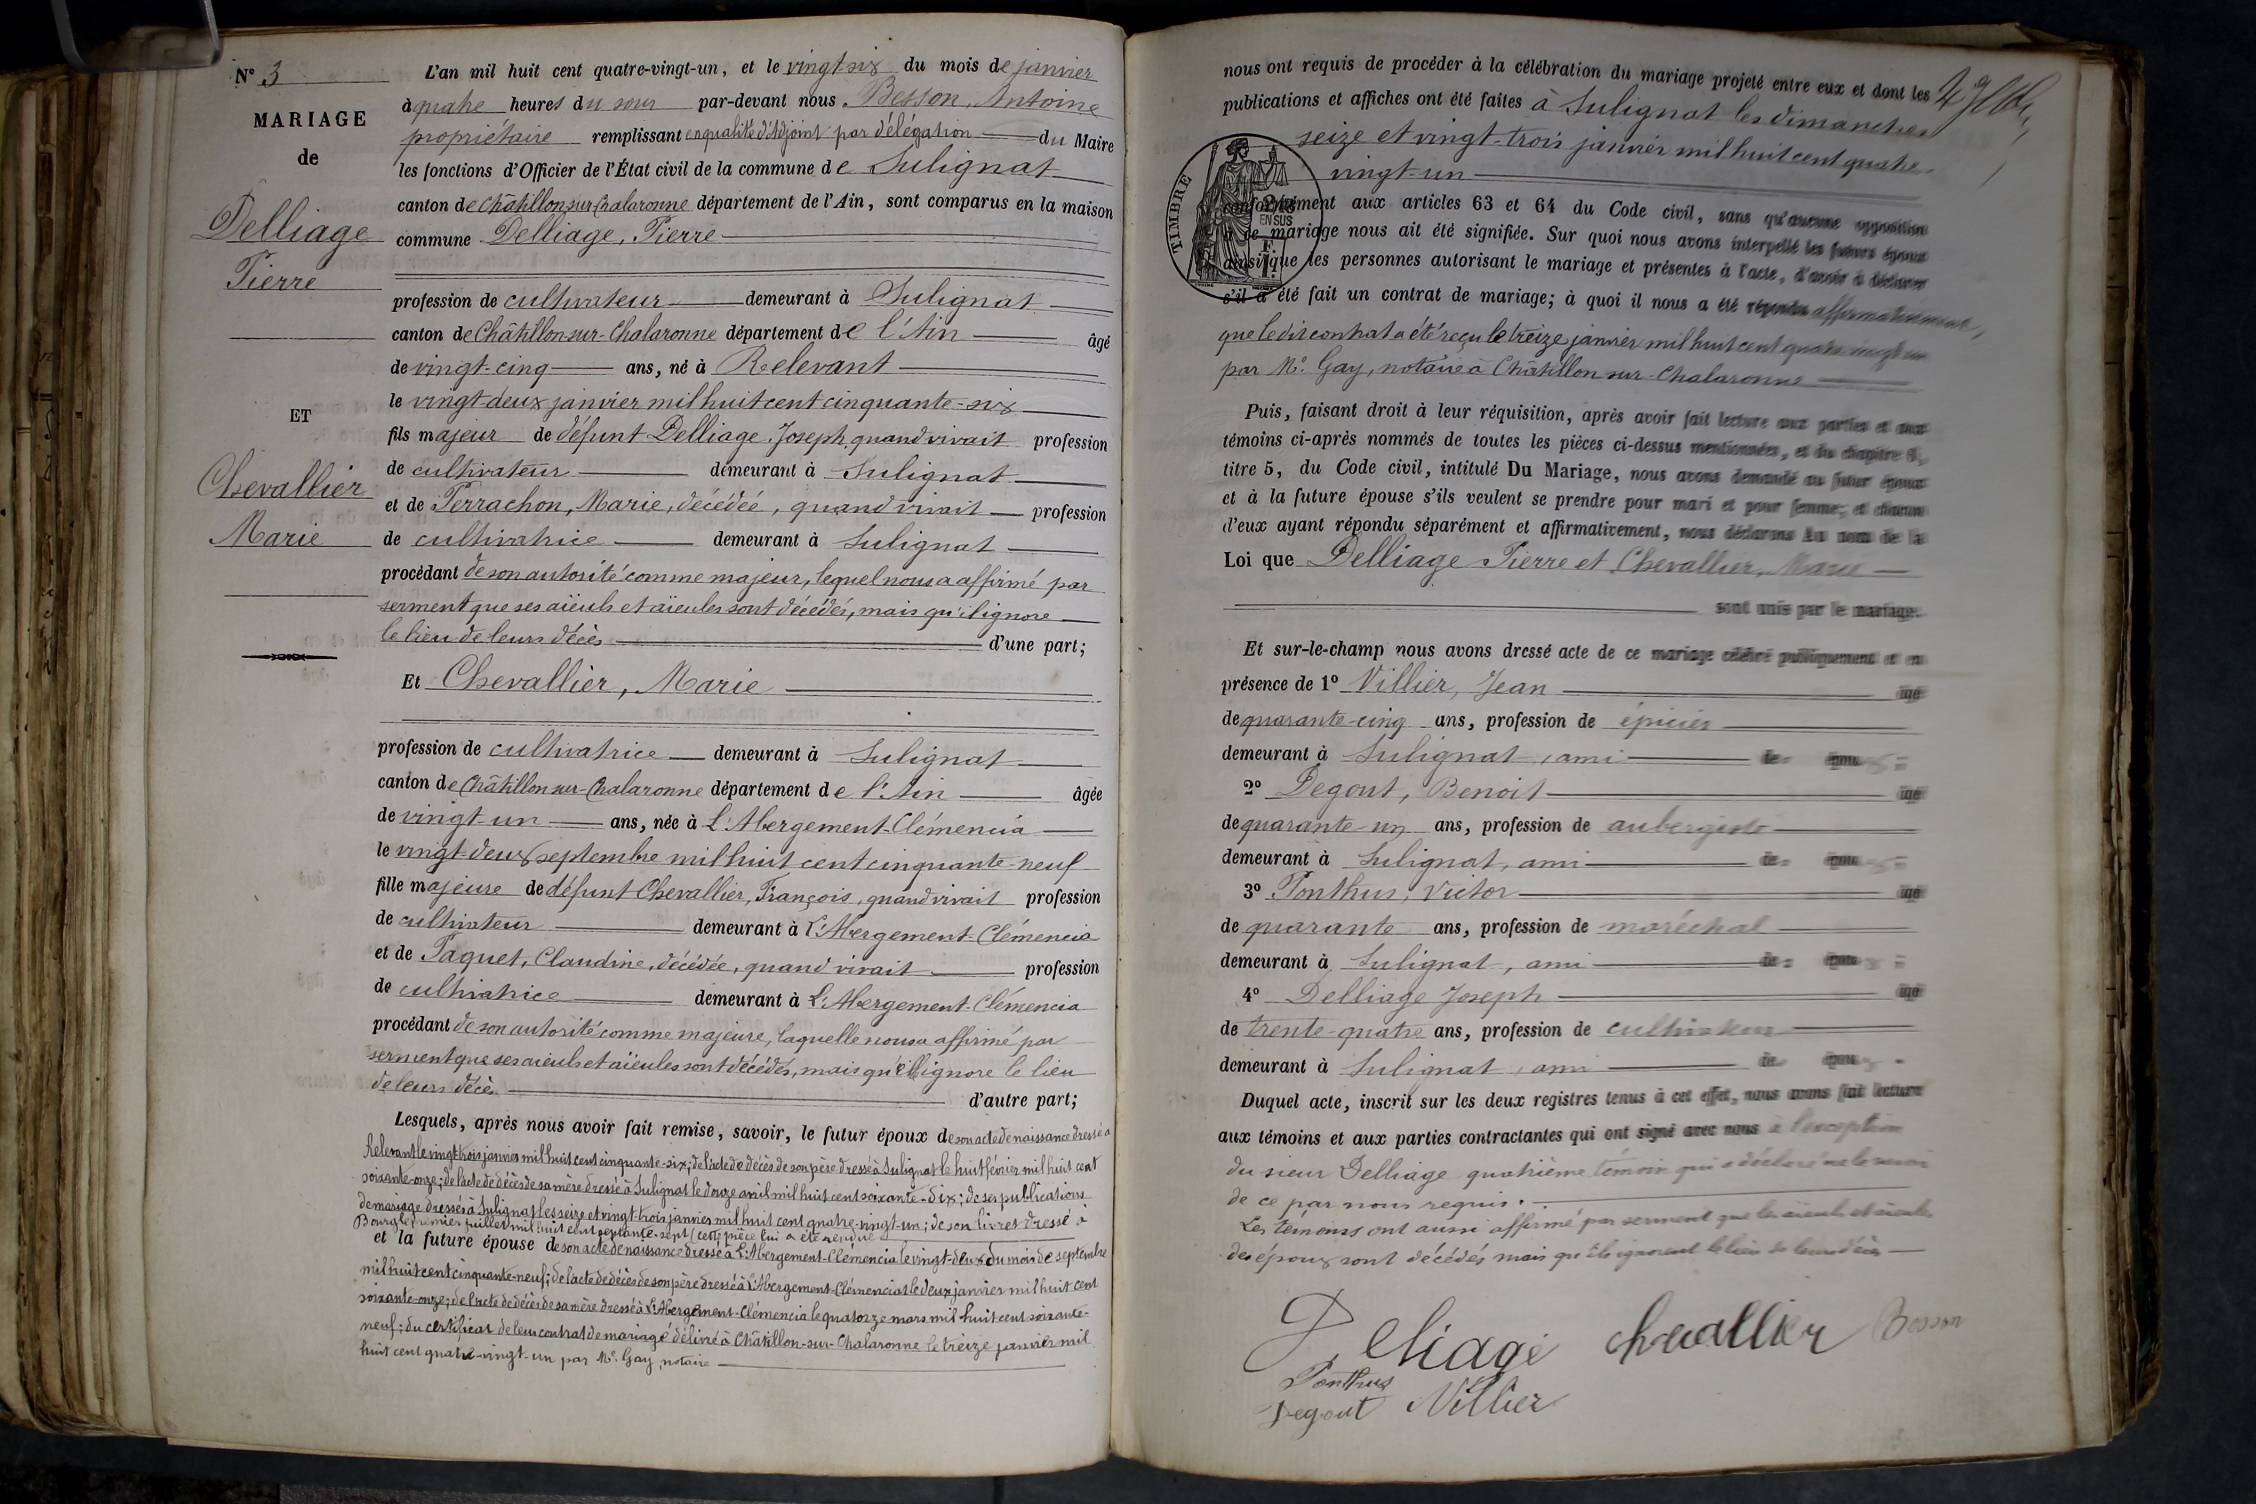 N° 3
MARIAGE
de
Delliage
Pierre
ET
Chevallier
Marie
L'an mil huit cent quatre-vingt-un, et le vingt six du mois de janvier
à quatre heures du soir par-devant nous Besson, Antoine
propriétaire remplissant en qualité d'Adjoint par délégation du Maire
les fonctions d'Officier de l'État civil de la commune de Sulignat
canton de Châtillon sur Chalaronne département de l'Ain, sont comparus en la maison
commune Delliage, Pierre
profession de cultivateur demeurant à Sulignat
canton de Châtillon sur-Chalaronne département de l'Ain âgé
de vingt-cinq ans, né à Relevant
le vingt-deux janvier mil huit cent cinquante-six
fils majeur de défunt Delliage Joseph, quand vivait profession
de cultivateur demeurant à Sulignat
et de Perrachon, Marie, décédée, quand vivait profession
de cultivatrice demeurant à Sulignat
procédant de son autorité comme majeur, lequel nous a affirmé par
serment que ses aïeuls et aïeules sont décédés, mais qu'il ignore
le lieu de leurs décès d'une part;
Et Chevallier, Marie
profession de cultivatrice demeurant à Sulignat
canton de Châtillon sur-Chalaronne département de l'Ain âgée
de vingt-un ans, née à L'Abergement-Clémencia
le vingt-deux septembre mil huit cent cinquante-neuf
fille majeure de défunt Chevallier, François, quand vivait profession
de cultivateur demeurant à L'Abergement-Clémencia
et de Paquet, Claudine, décédée, quand vivait profession
de cultivatrice demeurant à L'Abergement-Clémencia
procédant de son autorité comme majeure, laquelle nous a affirmé par
serment que ses aïeuls et aïeules sont décédés, mais qu'elle ignore le lieu
de leurs décè d'autre part;
Lesquels, après nous avoir fait remise, savoir, le futur époux de son acte de naissance dressé à
Relevant le vingt trois janvier mil huit cent cinquante-six; de l'acte de décès de son père dressé à Sulignat le huit février mil huit cent
soixante-onze; de l'acte de décès de sa mère dressé à Sulignat le douze avril mil huit cent soixante-dix; de ses publications
de mariage dressés à Sulignat les seize et vingt-trois janvier mil huit cent quatre-vingt-un; de son livret dressé à
Bourg le premier juillet mil huit cent septante-sept (cette pièce lui a été rendue)
et la future épouse de son acte de naissance dressé à L'Abergement-Clémencia le vingt-deux du mois de septembre
mil huit cent cinquante-neuf; de l'acte de décès de son père dressé à L'Abergement-Clémenciat le deux janvier mil huit cent
soixante-onze; de l'acte de décès de sa mère dressé à L'Abergement-Clémencia le quatorze mars mil huit cent soixante-
neuf; du certificat de leur contrat de mariage délivré à Châtillon-sur-Chalaronne le treize janvier mil
huit cent quatre-vingt-un par Me. Gay, notaire
nous ont requis de procéder à la célébration du mariage projeté entre eux et dont les
publications et affiches ont été faites à Sulignat les dimanches
seize et vingt-trois janvier mil huit cent quatre-
vingt-un
TIMBRE
EN SUS
conformément aux articles 63 et 64 du Code civil, sans qu'aucune opposition
à ce mariage nous ait été signifiée. Sur quoi nous avons interpellé les futurs époux
ainsi que les personnes autorisant le mariage et présentes à l'acte, d'avoir à déclarer
s'il a été fait un contrat de mariage; à quoi il nous a été répondu affirmativement,
que ledit contrat a été reçu le treize janvier mil huit cent quatre vingt un
par Me. Gay, notaire à Châtillon sur-Chalaronne
Puis, faisant droit à leur réquisition, après avoir fait lecture aux parties et aux
témoins ci-après nommés de toutes les pièces ci-dessus mentionnées, et du chapitre 6,
titre 5, du Code civil, intitulé Du Mariage, nous avons demandé au futur époux
et à la future épouse s'ils veulent se prendre pour mari et pour femme; et chacun
d'eux ayant répondu séparément et affirmativement, nous déclarons Au nom de la
Loi que Delliage Pierre et Chevallier, Marie
sont unis par le mariage.
Et sur-le-champ nous avons dressé acte de ce mariage célébré publiquement et en
présence de 1° Villier, Jean âgé
de quarante-cinq ans, profession de épicier
demeurant à Sulignat, ami des époux
2° Degout, Benoit âgé
de quarante-un ans, profession de aubergiste
demeurant à Sulignat, ami des époux
3° Ponthus, Victor âgé
de quarante ans, profession de maréchal
demeurant à Sulignat, ami des époux
4° Delliage Joseph âgé
de trente-quatre ans, profession de cultivateur
demeurant à Sulignat, ami des époux
Duquel acte, inscrit sur les deux registres tenus à cet effet, nous avons fait lecture
aux témoins et aux parties contractantes qui ont signé avec nous à l'exception
du sieur Delliage quatrième témoin qui a déclaré ne le savoir
de ce par nous requis.
Les témoins ont aussi affirmé par serment que les aïeuls et aïeules
des époux sont décédés mais qu'ils ignorent le lieu de leurs décès
Deliage chevallier Besson
Ponthus
Degout Villier